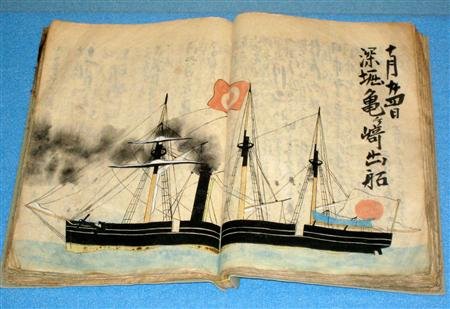 七月廿四日
深堀亀ヶ崎出船